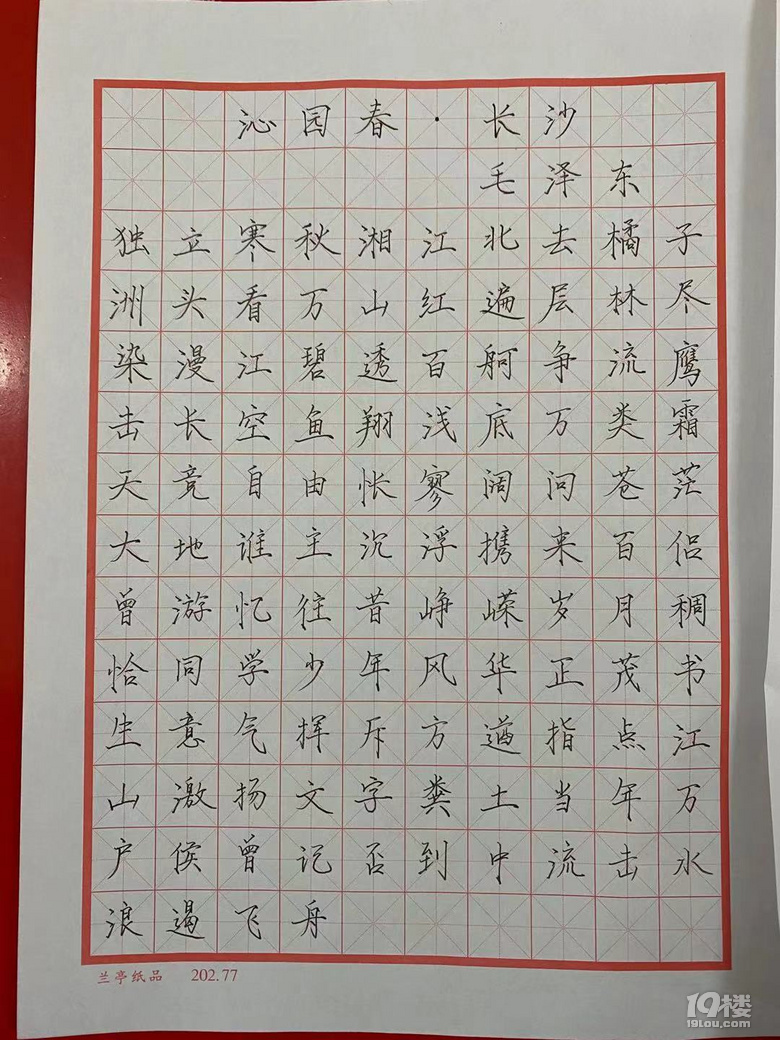 沁园春·长沙
毛泽东
独立寒秋湘江北去橘子
洲头看万山红遍层林尽
染漫江碧透百舸争流鹰
击长空鱼翔浅底万类霜
天竞自由怅寥阔问苍茫
大地谁主沉浮携来百侣
曾游忆往昔峥嵘岁月稠
恰同学少年风华正茂书
生意气挥斥方遒指点江
山激扬文字粪土当年万
户侯曾记否到中流击水
浪遏飞舟
兰亭纸品 202.77
19楼
19lou.com